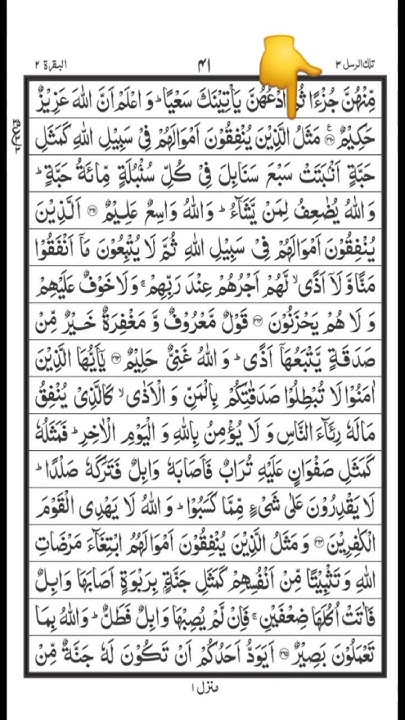 تلك الرسل ٣ ٤١ البقرة ٢
مِّنْهُنَّ جُزْءًا ثُمَّ ادْعُهُنَّ يَاْتِيْنَكَ سَعْيًا ؕ وَ اعْلَمْ اَنَّ اللّٰهَ عَزِيْزٌ
حَكِيْمٌ مَثَلُ الَّذِيْنَ يُنْفِقُوْنَ اَمْوَالَهُمْ فِيْ سَبِيْلِ اللّٰهِ كَمَثَلِ
حَبَّةٍ اَنْۢبَتَتْ سَبْعَ سَنَابِلَ فِيْ كُلِّ سُنْۢبُلَةٍ مِّائَةُ حَبَّةٍ ؕ
وَاللّٰهُ يُضٰعِفُ لِمَنْ يَّشَآءُ ؕ وَاللّٰهُ وَاسِعٌ عَلِيْمٌ اَلَّذِيْنَ
يُنْفِقُوْنَ اَمْوَالَهُمْ فِيْ سَبِيْلِ اللّٰهِ ثُمَّ لَا يُتْبِعُوْنَ مَاۤ اَنْفَقُوْا
مَنًّا وَّلَاۤ اَذًى ۙ لَّهُمْ اَجْرُهُمْ عِنْدَ رَبِّهِمْ ۚ وَلَا خَوْفٌ عَلَيْهِمْ
وَلَا هُمْ يَحْزَنُوْنَ قَوْلٌ مَّعْرُوْفٌ وَّ مَغْفِرَةٌ خَيْرٌ مِّنْ
صَدَقَةٍ يَّتْبَعُهَاۤ اَذًى ؕ وَ اللّٰهُ غَنِيٌّ حَلِيْمٌ يٰۤاَيُّهَا الَّذِيْنَ
اٰمَنُوْا لَا تُبْطِلُوْا صَدَقٰتِكُمْ بِالْمَنِّ وَ الْاَذٰى ۙ كَالَّذِيْ يُنْفِقُ
مَالَهٗ رِئَآءَ النَّاسِ وَ لَا يُؤْمِنُ بِاللّٰهِ وَ الْيَوْمِ الْاٰخِرِ ؕ فَمَثَلُهٗ
كَمَثَلِ صَفْوَانٍ عَلَيْهِ تُرَابٌ فَاَصَابَهٗ وَابِلٌ فَتَرَكَهٗ صَلْدًا ؕ
لَا يَقْدِرُوْنَ عَلٰى شَيْءٍ مِّمَّا كَسَبُوْا ؕ وَ اللّٰهُ لَا يَهْدِي الْقَوْمَ
الْكٰفِرِيْنَ وَ مَثَلُ الَّذِيْنَ يُنْفِقُوْنَ اَمْوَالَهُمُ ابْتِغَآءَ مَرْضَاتِ
اللّٰهِ وَ تَثْبِيْتًا مِّنْ اَنْفُسِهِمْ كَمَثَلِ جَنَّةٍۭ بِرَبْوَةٍ اَصَابَهَا وَابِلٌ
فَاٰتَتْ اُكُلَهَا ضِعْفَيْنِ ۚ فَاِنْ لَّمْ يُصِبْهَا وَابِلٌ فَطَلٌّ ؕ وَاللّٰهُ بِمَا
تَعْمَلُوْنَ بَصِيْرٌ اَيَوَدُّ اَحَدُكُمْ اَنْ تَكُوْنَ لَهٗ جَنَّةٌ مِّنْ
منزل ١